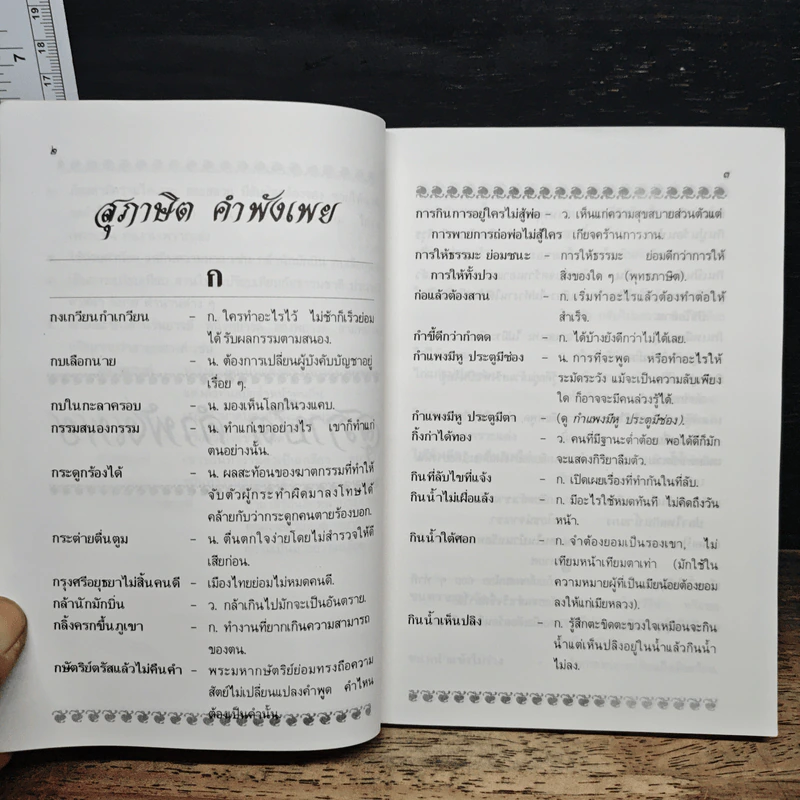 ๒
สุภาษิต คำพังเพย
ก
กงเกวียนกำเกวียน – ก. ใครทำอะไรไว้ ไม่ช้าก็เร็วย่อม
ได้รับผลกรรมตามสนอง.
กบเลือกนาย – น. ต้องการเปลี่ยนผู้บังคับบัญชาอยู่
เรื่อย ๆ.
กบในกะลาครอบ – น. มองเห็นโลกในวงแคบ.
กรรมสนองกรรม – น. ทำแก่เขาอย่างไร เขาก็ทำแก่
ตนอย่างนั้น.
กระดูกร้องได้ – น. ผลสะท้อนของฆาตกรรมที่ทำให้
จับตัวผู้กระทำผิดมาลงโทษได้
คล้ายกับว่ากระดูกคนตายร้องบอก.
กระต่ายตื่นตูม – น. ตื่นตกใจง่ายโดยไม่สำรวจให้ดี
เสียก่อน.
กรุงศรีอยุธยาไม่สิ้นคนดี – เมืองไทยย่อมไม่หมดคนดี.
กล้านักมักบิ่น – ว. กล้าเกินไปมักจะเป็นอันตราย.
กลิ้งครกขึ้นภูเขา – ก. ทำงานที่ยากเกินความสามารถ
ของตน.
กษัตริย์ตรัสแล้วไม่คืนคำ – พระมหากษัตริย์ย่อมทรงถือความ
สัตย์ไม่เปลี่ยนแปลงคำพูด คำไหน
ต้องเป็นคำนั้น
๓
การกินการอยู่ใครไม่สู้พ่อ – ว. เห็นแก่ความสุขสบายส่วนตัวแต่
การพายการถ่อพ่อไม่สู้ใคร เกียจคร้านการงาน.
การให้ธรรมะ ย่อมชนะ – การให้ธรรมะ ย่อมดีกว่าการให้
การให้ทั้งปวง สิ่งของใด ๆ (พุทธภาษิต).
ก่อแล้วต้องสาน – ก. เริ่มทำอะไรแล้วต้องทำต่อให้
สำเร็จ.
กำขี้ดีกว่ากำตด – ก. ได้บ้างยังดีกว่าไม่ได้เลย.
กำแพงมีหู ประตูมีช่อง – น. การที่จะพูด หรือทำอะไรให้
ระมัดระวัง แม้จะเป็นความลับเพียง
ใด ก็อาจจะมีคนล่วงรู้ได้.
กำแพงมีหู ประตูมีตา – (ดู กำแพงมีหู ประตูมีช่อง).
กิ้งก่าได้ทอง – ว. คนที่มีฐานะต่ำต้อย พอได้ดีก็มัก
จะแสดงกิริยาลืมตัว.
กินที่ลับไขที่แจ้ง – ก. เปิดเผยเรื่องที่ทำกันในที่ลับ.
กินน้ำไม่เผื่อแล้ง – ก. มีอะไรใช้หมดทันที ไม่คิดถึงวัน
หน้า.
กินน้ำใต้ศอก – ก. จำต้องยอมเป็นรองเขา, ไม่
เทียมหน้าเทียมตาเท่า (มักใช้ใน
ความหมายผู้ที่เป็นเมียน้อยต้องยอม
ลงให้แก่เมียหลวง).
กินน้ำเห็นปลิง – ก. รู้สึกตะขิดตะขวงใจเหมือนจะกิน
น้ำแต่เห็นปลิงอยู่ในน้ำแล้วกินน้ำ
ไม่ลง.
17
19
7